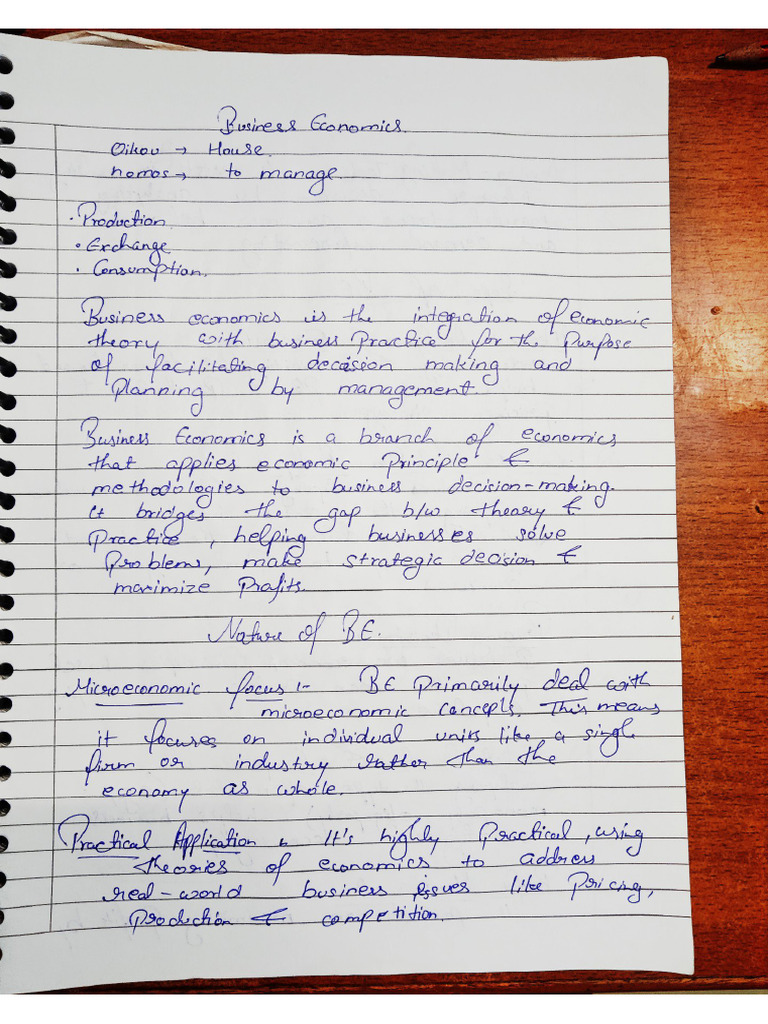 Business Economics.
Oikou → House.
nomos → to manage.
• Production.
• Exchange
• Consumption.
Business economics is the integration of economic
theory with business Practice for the Purpose
of facilitating decision making and
Planning by management.
Business Economics is a branch of economics
that applies economic Principle &
methodologies to business decision-making.
It bridges the gap b/w theory &
Practice, helping businesses solve
Problems, make strategic decision &
maximize Profits.
Nature of BE.
Microeconomic focus :- BE Primarily deal with
microeconomic concepts. This means
it focuses on individual units like a single
firm or industry rather than the
economy as whole.
Practical Application :- It's highly Practical, using
theories of economics to address
real-world business issues like Pricing,
Production & competition.